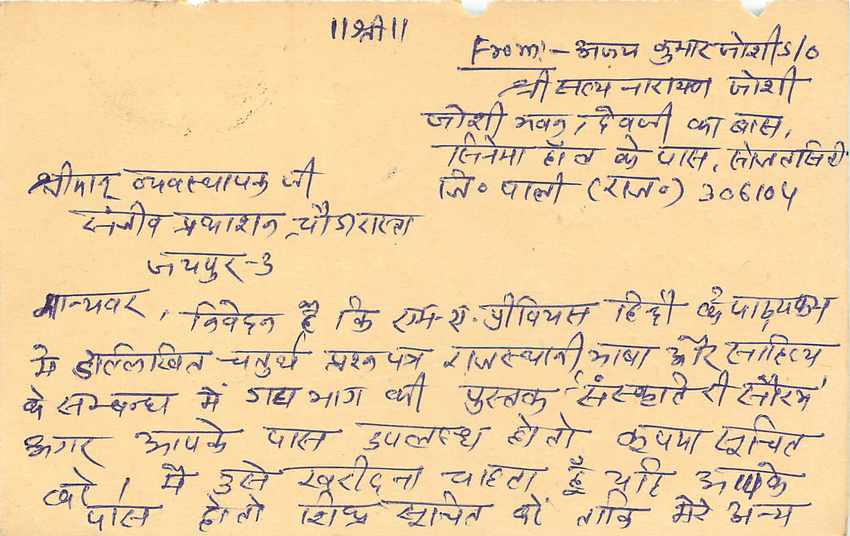 ॥श्री॥
From:- अजय कुमार जोशी S/O
श्री सत्य नारायण जोशी
जोशी भवन, देवजी का बास,
सिनेमा हॉल के पास, सोजतसिटी
जि० पाली (राज०) 306104
श्रीमान् व्यवस्थापक जी
संजीव प्रकाशन, चौड़ा रास्ता
जयपुर-3
मान्यवर, निवेदन है कि एम-ए. प्रीवियस हिन्दी के पाठ्यक्रम
मे उल्लिखित चतुर्थ प्रश्नपत्र राजस्थानी भाषा और साहित्य
के सम्बन्ध में गद्य भाग की पुस्तक "संस्कृति री सौरभ"
अगर आपके पास उपलब्ध हो तो कृपया सूचित
करे। मै उसे खरीदना चाहता हूँ यदि आपके
पास हो तो शिघ्र सूचित करें ताकि मेरे अन्य